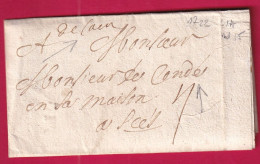 de Caen
1722
A Monsieur
Monsieur des Condes
en sa maison
a Sées